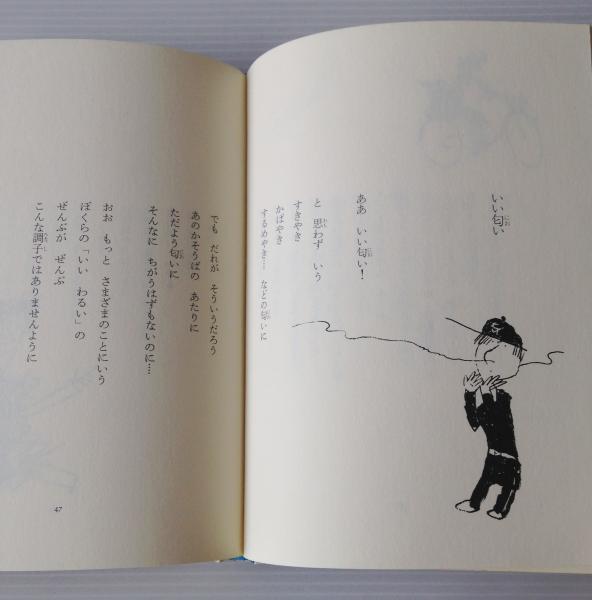 いい匂い
ああ いい匂い!
と 思わず いう
すきやき
かばやき
するめやき… などの匂いに
でも だれが そういうだろう
あのかそうばの あたりに
ただよう匂いに
そんなに ちがうはずもないのに…
おお もっと さまざまのことにいう
ぼくらの「いい わるい」の
ぜんぶが ぜんぶ
こんな調子ではありませんように
47